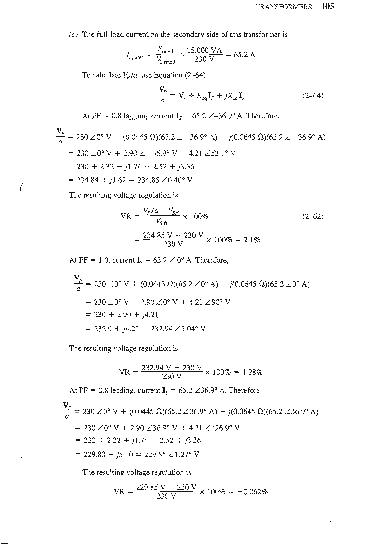 TRANSFORMERS 105
The full-load current on the secondary side of this transformer is
= 15,000 VA / 230 V = 65.2 A
To calculate Vp/a, use Equation (2–64)
Vp/a = Vs + Req Is + jXeq Is (2–64)
At PF = 0.8 lagging, current Is = 65.2 ∠−36.9° A. Therefore,
Vp/a = 230 ∠0° V + (0.0445 Ω)(65.2 ∠−36.9° A) + j(0.0645 Ω)(65.2 ∠−36.9° A)
= 230 ∠0° V + 2.90 ∠−36.9° V + 4.21 ∠53.1° V
= 230 + 2.32 − j1.74 + 2.52 + j3.36
= 234.84 + j1.62 = 234.85 ∠0.40° V
The resulting voltage regulation is
VR = × 100% (2–62)
= 234.85 V − 230 V / 230 V × 100% = 2.1%
At PF = 1.0, current Is = 65.2 ∠0° A. Therefore,
Vp/a = 230 ∠0° V + (0.0445 Ω)(65.2 ∠0° A) + j(0.0645 Ω)(65.2 ∠0° A)
= 230 ∠0° V + 2.90 ∠0° V + 4.21 ∠90° V
= 230 + 2.90 + j4.21
= 232.9 + j4.21 = 232.94 ∠1.04° V
The resulting voltage regulation is
VR = 232.94 V − 230 V / 230 V × 100% = 1.28%
At PF = 0.8 leading, current Is = 65.2 ∠36.9° A. Therefore,
Vp/a = 230 ∠0° V + (0.0445 Ω)(65.2 ∠36.9° A) + j(0.0645 Ω)(65.2 ∠36.9° A)
= 230 ∠0° V + 2.90 ∠36.9° V + 4.21 ∠126.9° V
= 230 + 2.32 + j1.74 − 2.52 + j3.36
= 229.80 + = ∠1.27° V
The resulting voltage regulation is
VR = 229.85 V − 230 V / 230 V × 100% = −0.062%